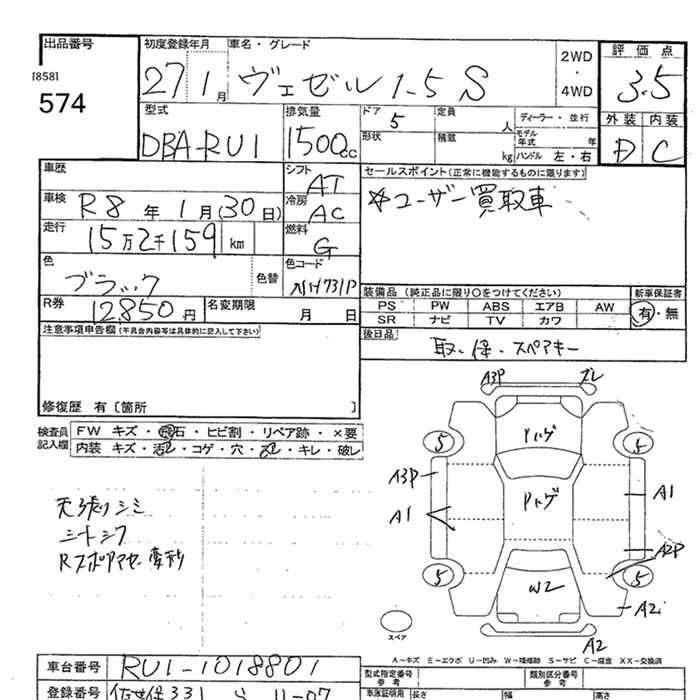 出品番号
[858]
574
初度登録年月 車名・グレード
27 1月 ヴェゼル 1-5 S
2WD
・
4WD
評価点
3.5
外装 内装
D C
型式
DBA-RU1
排気量
1500cc
ドア
5
定員
人
ディーラー・並行
形状
積載
kg
モデル年式 年
ハンドル 左・右
車歴
シフト
AT
セールスポイント(正常に機能するものに限ります)
☆ユーザー買取車
車検
R8年 1月(30日)
冷房
AC
走行
15万2千159 km
燃料
G
色
ブラック
色替
色コード
NH731P
R券
12850円
名変期限
月 日
装備品(純正品に限り○をつけてください)
PS PW ABS エアB AW
SR ナビ TV カワ
新車保証書
有・無
後日品
取・保・スペアキー
注意事項申告欄(不具合内容等は具体的に記入して下さい)
修復歴 有〔箇所 〕
検査員記入欄
FW キズ・飛石・ヒビ割・リペア跡・×要
内装 キズ・汚レ・コゲ・穴・・キレ・破レ
天張りシミ
シートシワ
A3P
ズレ
ハゲ
5
5
A3P
A1
ハゲ
A1
A2P
5
5
W2
A2
A2
スペア
A-キズ E-エクボ U-凹み W-補修跡 S-サビ C-腐食 XX-交換済
車台番号
RU1-1018801
登録番号
佐世保331 11-07
型式指定番号
参考
類別区分番号
参考
長さ
幅
高さ